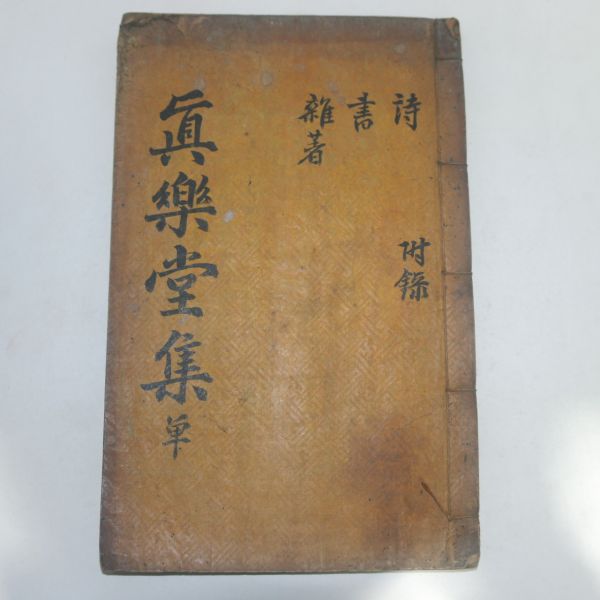 眞樂堂集 単
詩
書
雜著
附錄